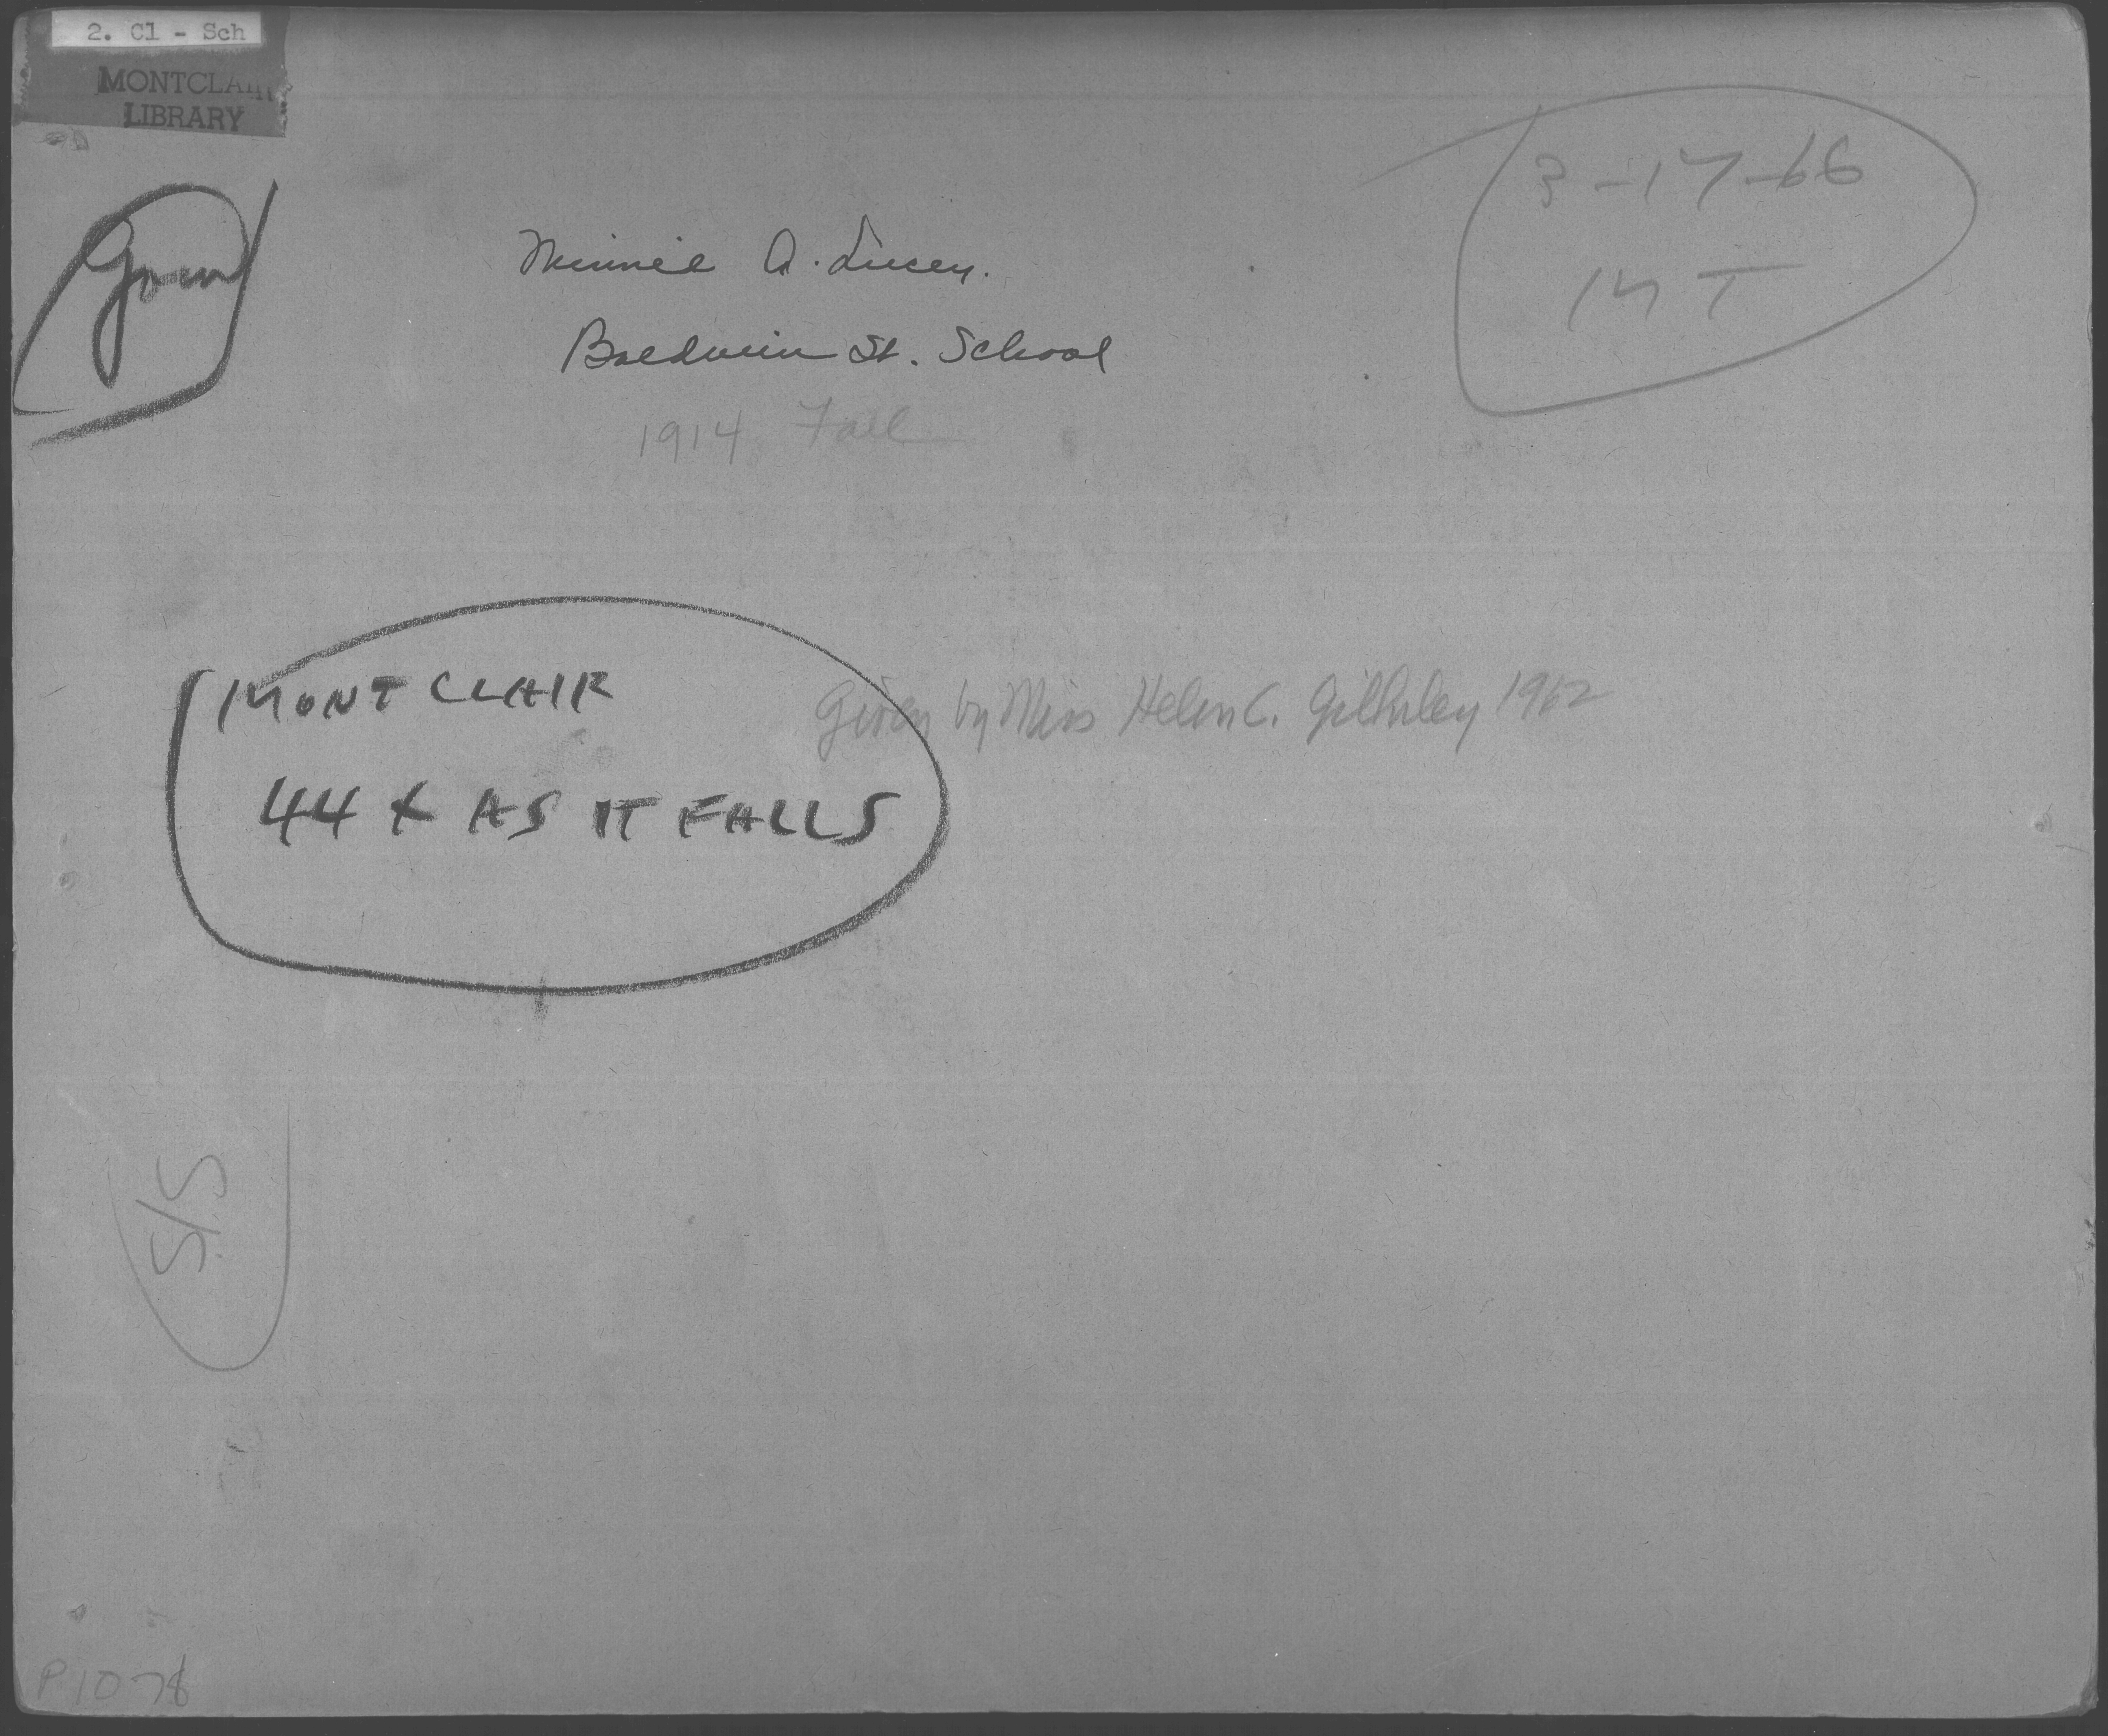 2. Cl - Sch
MONTCLAIR
LIBRARY
3-17-66
MT
Minnie A. Lucey.
Baldwin St. School
1914 Fall
MONTCLAIR
44 x AS IT FALLS
Given by Miss Helen C. 1962
S/S
P1078